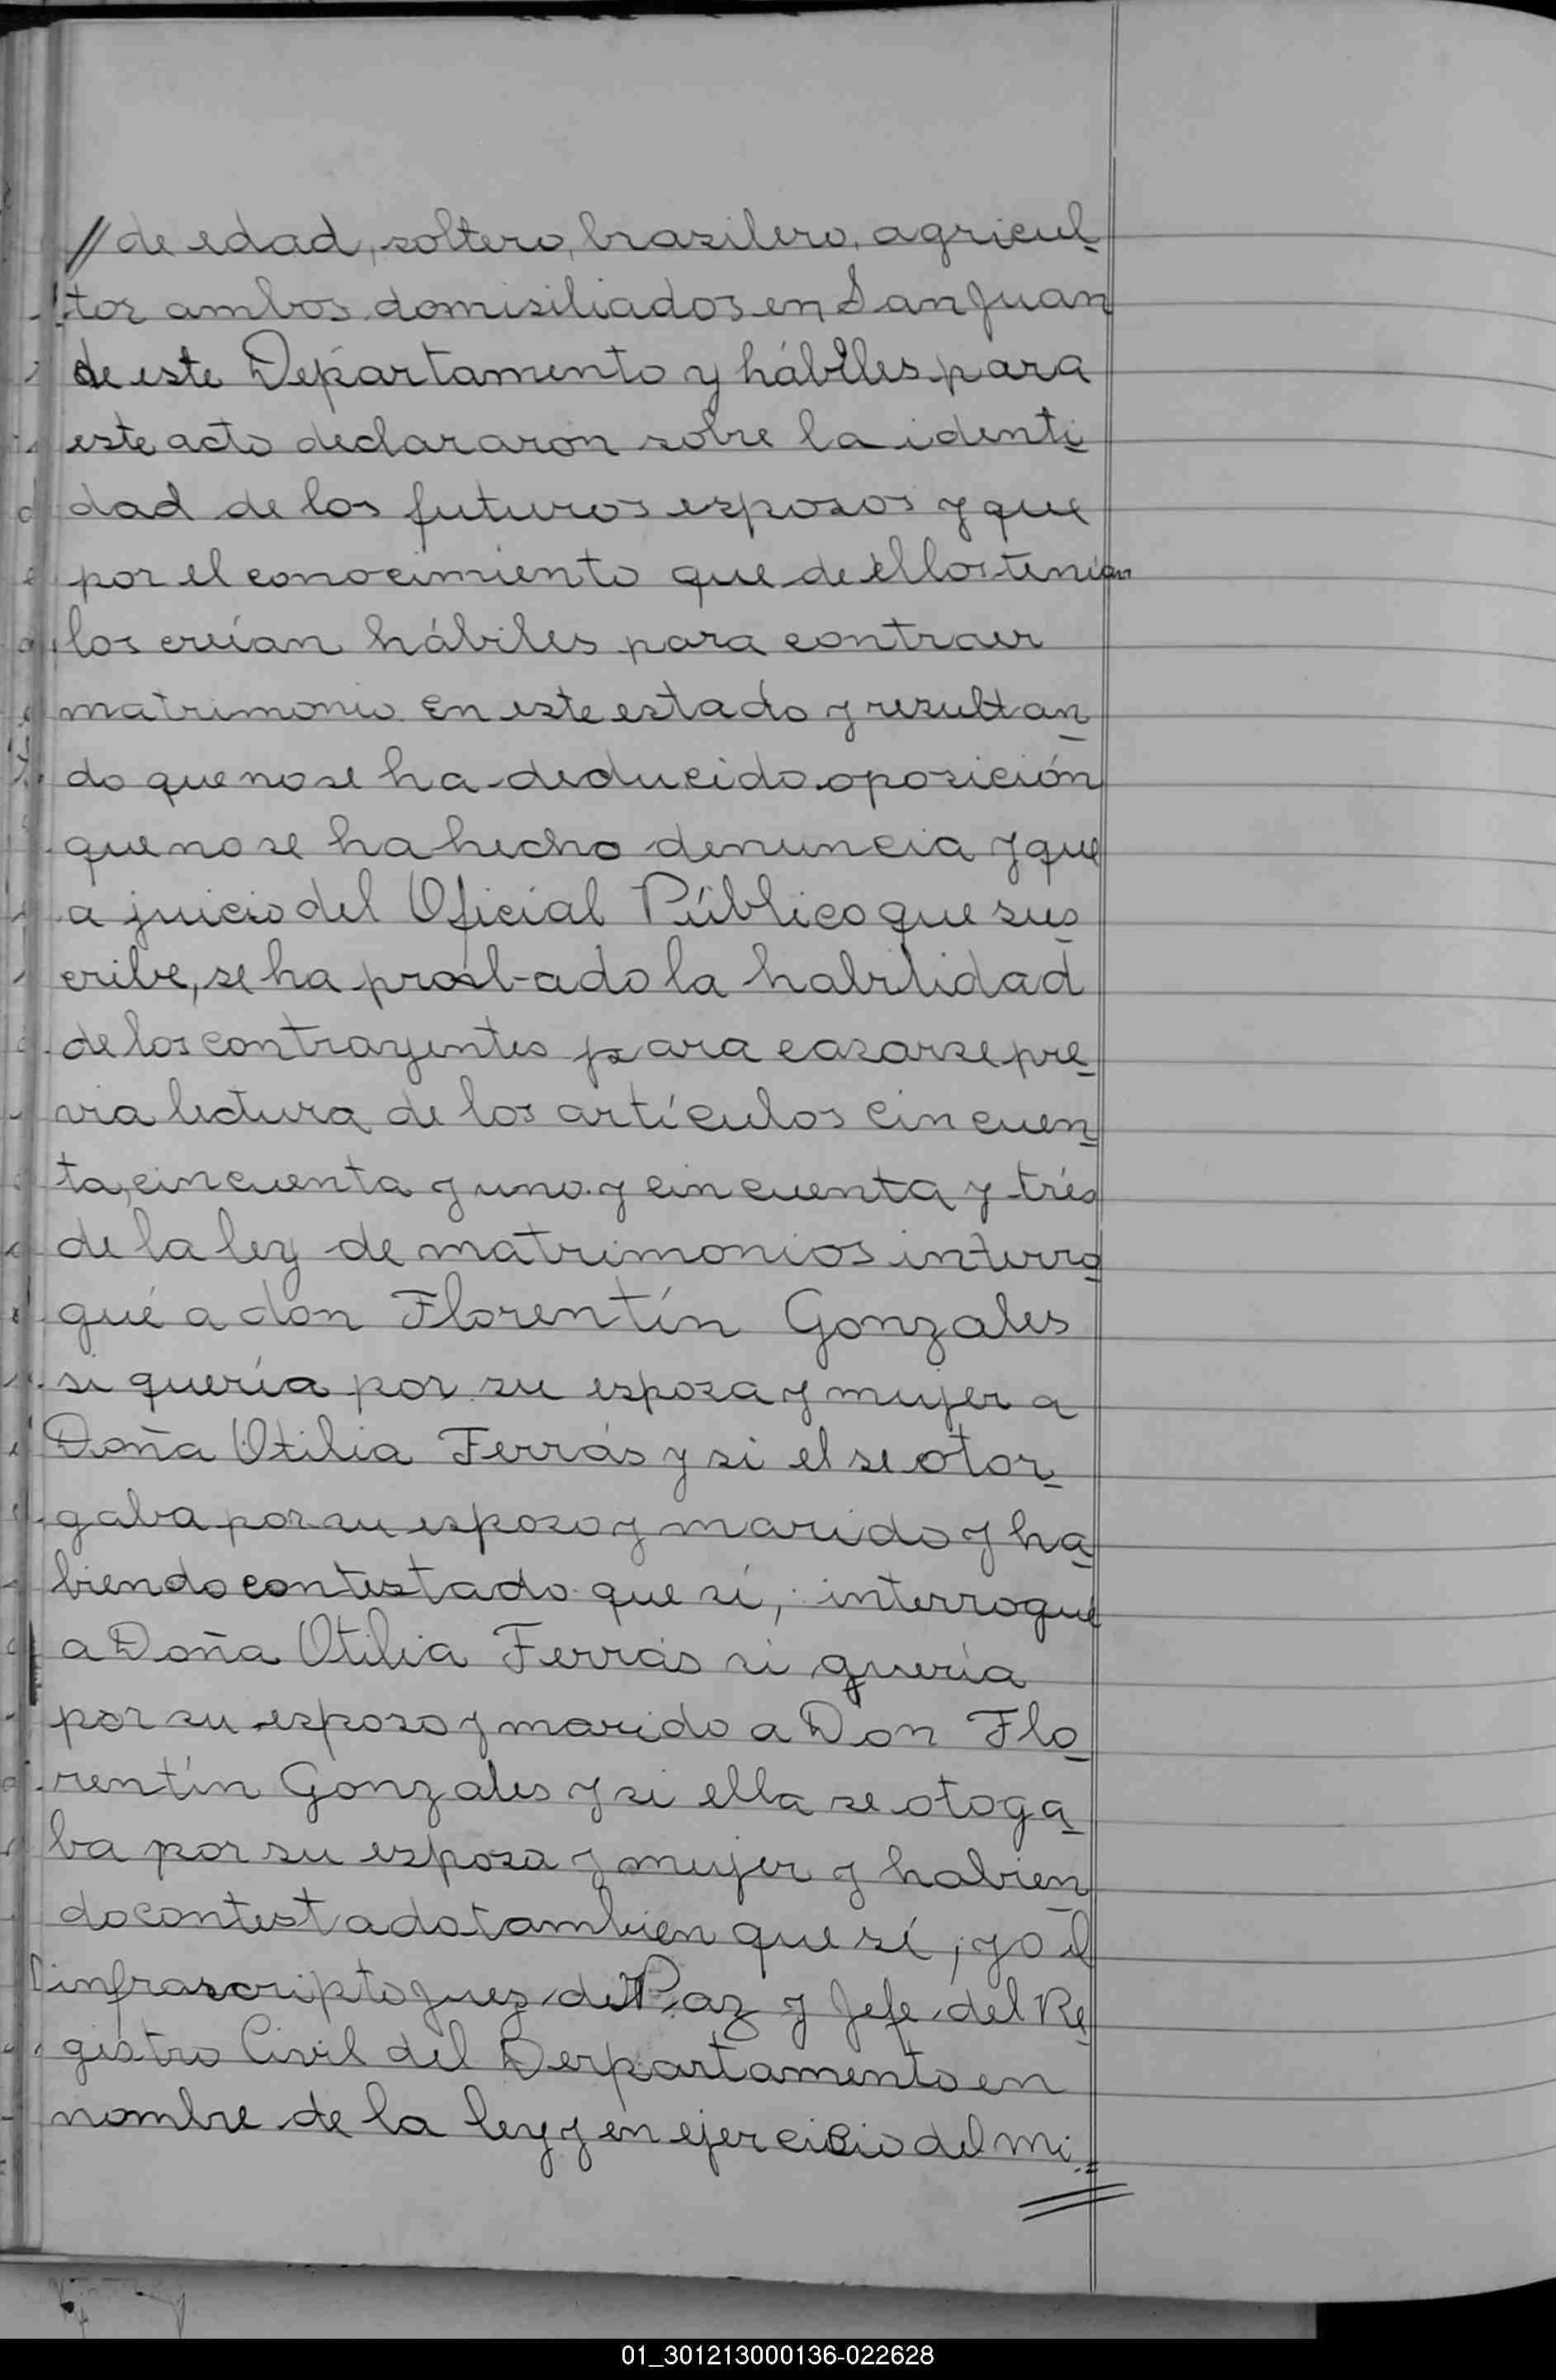 // de edad, soltero, brasilero, agricul-
tor ambos domisiliados en San Juan
de este Departamento y hábiles para
este acto declararon sobre la identi-
dad de los futuros esposos y que
por el conocimiento que de ellos tenían
los creían hábiles para contraer
matrimonio. En este estado y resultan-
do que no se ha deducido oposición
que no se ha hecho denuncia y que
a juicio del Oficial Público que sus-
cribe, se ha probado la habilidad
de los contrayentes para casarse pre-
via lectura de los artículos cincuen-
ta, cincuenta y uno y cincuenta y trés
de la ley de matrimonios interro-
gué a don Florentín Gonzales
si quería por su esposa y mujer a
Doña Otilia Ferrás y si el se otor-
gaba por su esposo y marido y ha-
biendo contestado que sí, interrogué
a Doña Otilia Ferrás si quería
por su esposo y marido a Don Flo-
rentín Gonzales y si ella se otoga-
ba por su esposa y mujer y habien-
do contestado tambien que sí, yo el
infrascripto Juez de Paz y Jefe del Re-
gistro Civil del Derpartamento en
nombre de la ley y en ejercicio del mi=
01_301213000136-022628